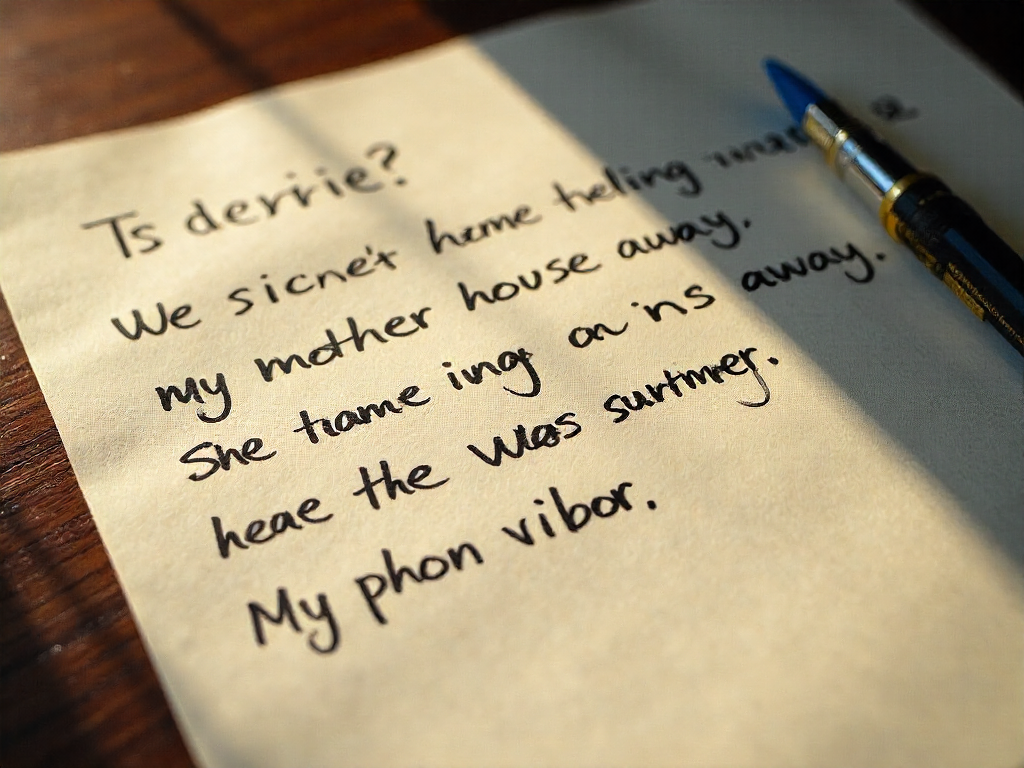 Ts derrie?
We sicne't heme heling
my mother house away.
She tiame ing an ins away.
heae the was surtmer.
My phon vibor.